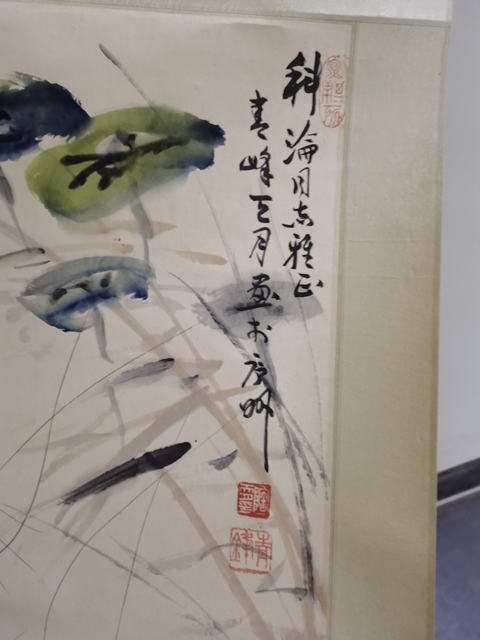 科淪同志雅正
青峰三月画於广州
青